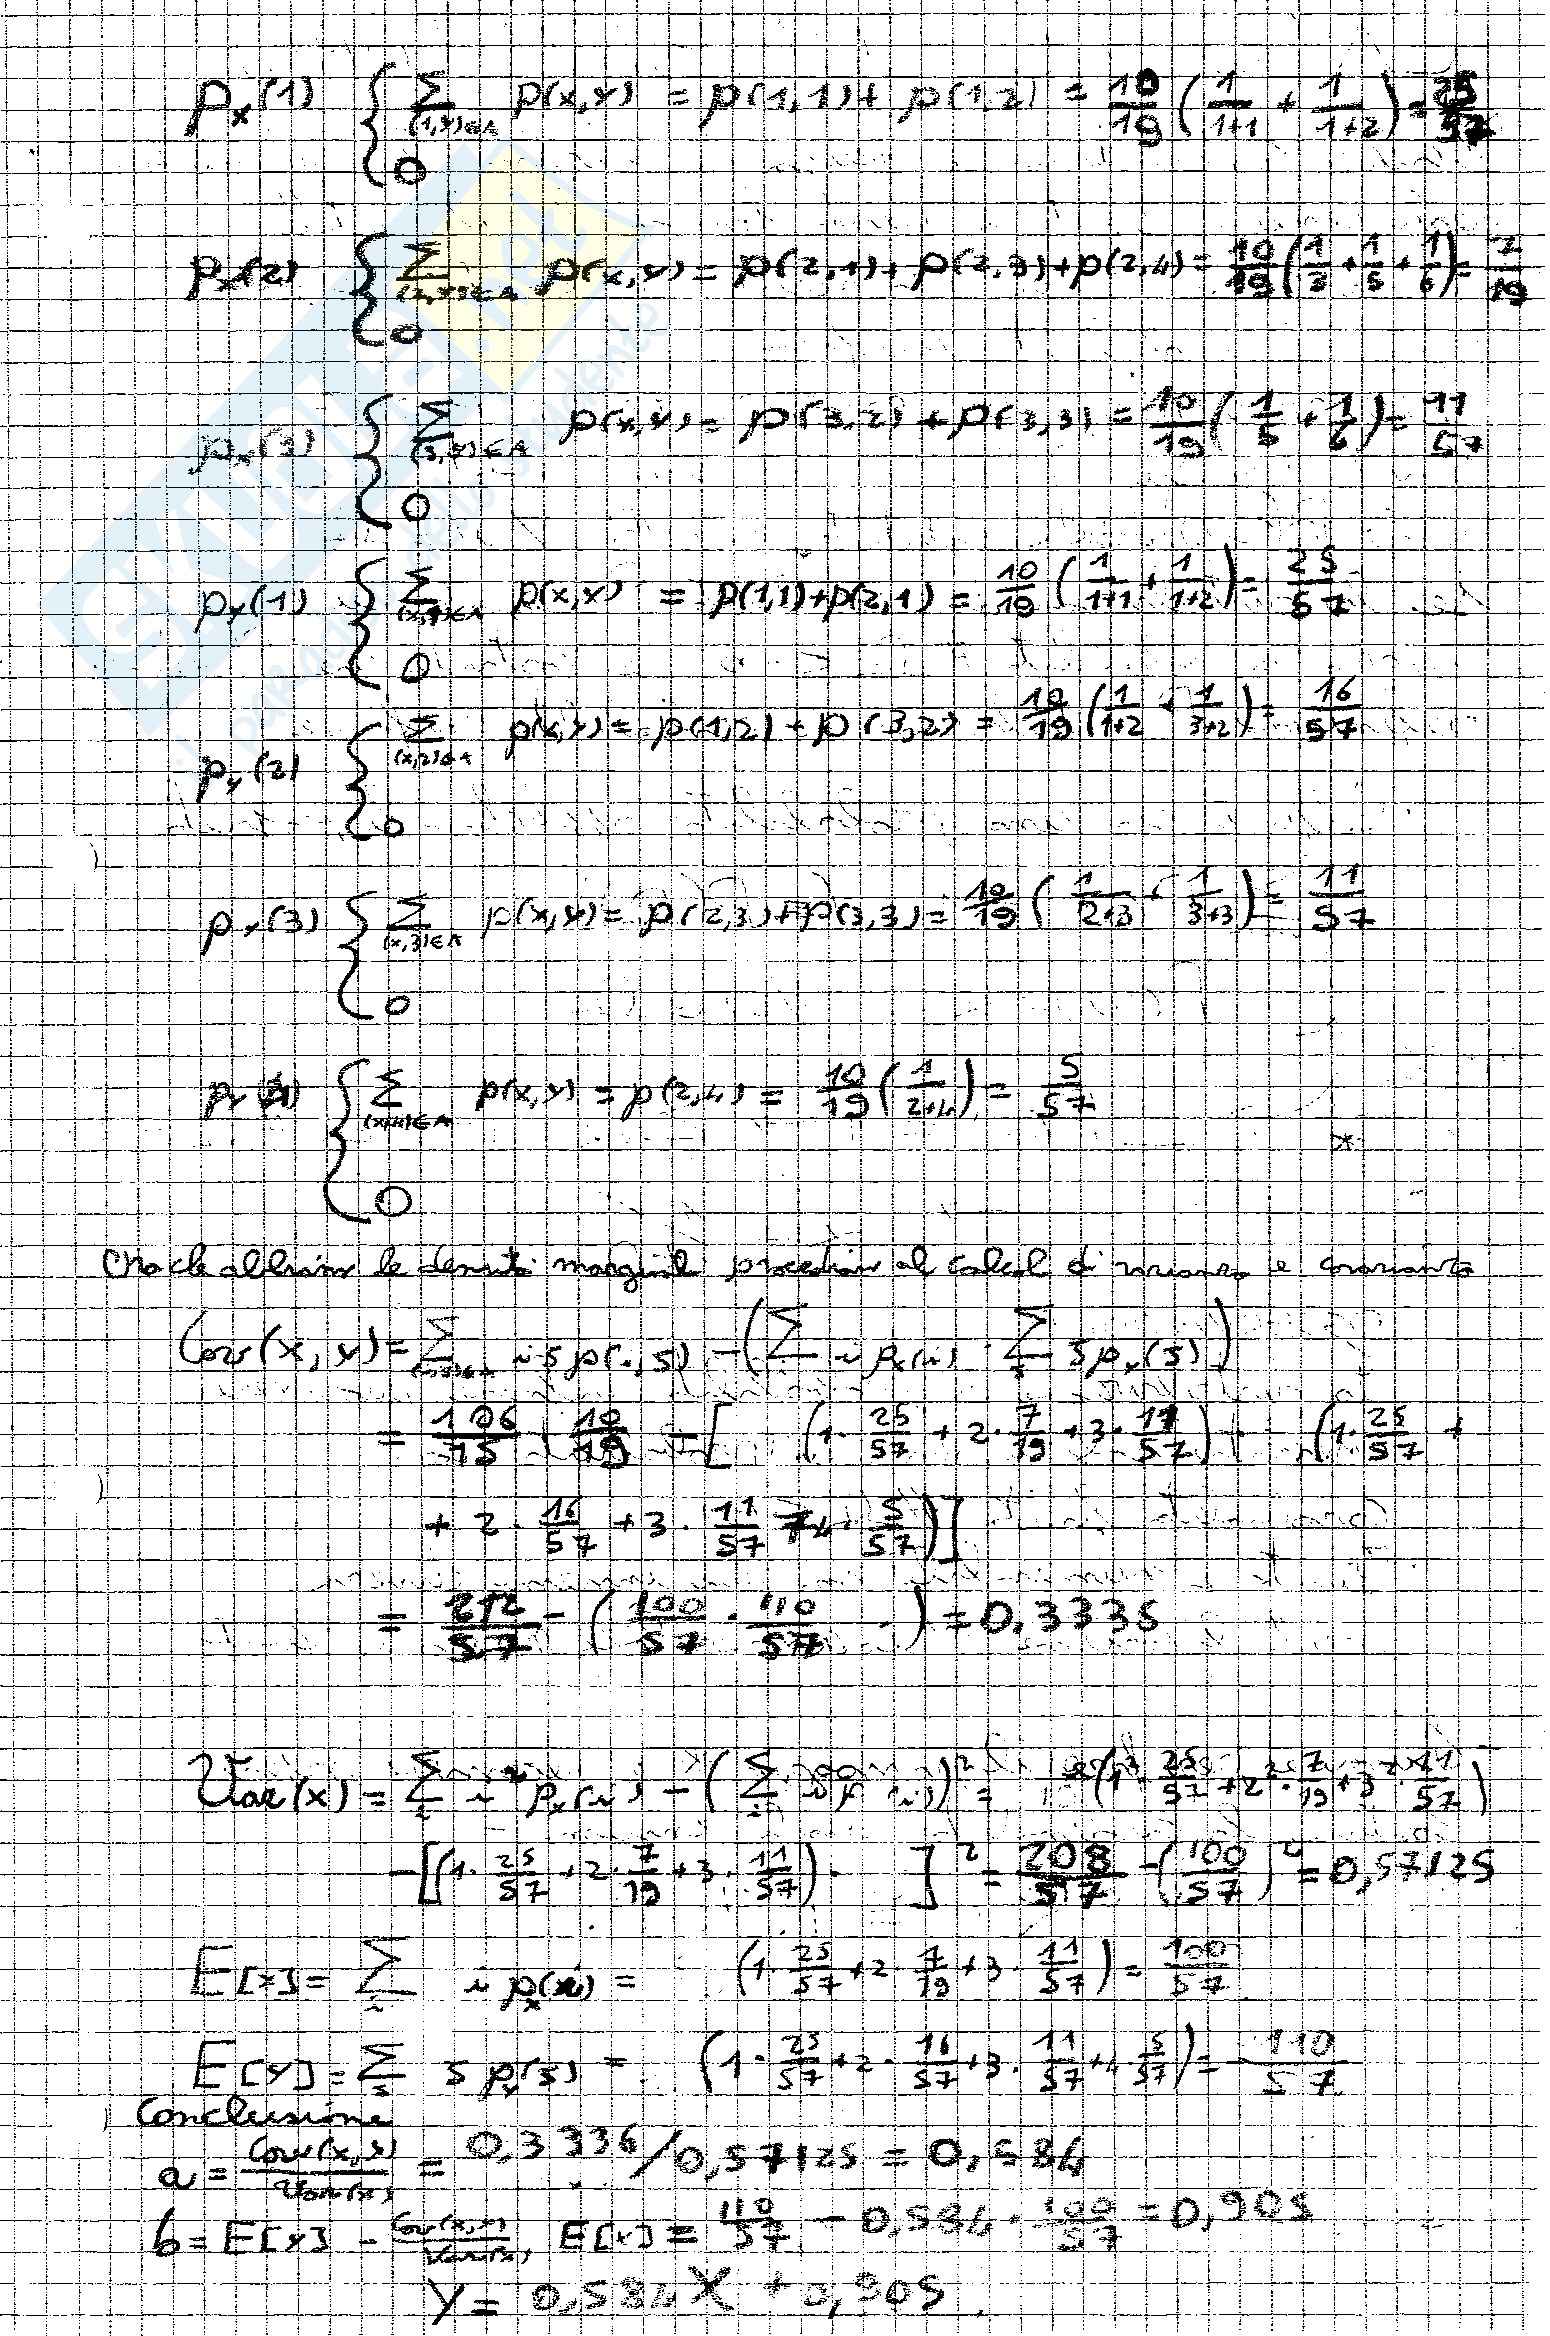 p_x(1) { Σ_{(1,y)∈A} p(x,y) = p(1,1) + p(1,2) = 10/19 (1/(1+1) + 1/(1+2)) = 25/57
0
p_x(2) { Σ_{(2,y)∈A} p(x,y) = p(2,1) + p(2,3) + p(2,4) = 10/19 (1/3 + 1/5 + 1/6) = 7/19
0
p_x(3) { Σ_{(3,y)∈A} p(x,y) = p(3,2) + p(3,3) = 10/19 (1/5 + 1/6) = 11/57
0
p_Y(1) { Σ_{(x,1)∈A} p(x,y) = p(1,1) + p(2,1) = 10/19 (1/(1+1) + 1/(1+2)) = 25/57
0
p_Y(2) { Σ_{(x,2)∈A} p(x,y) = p(1,2) + p(3,2) = 10/19 (1/(1+2) + 1/(3+2)) = 16/57
0
p_Y(3) { Σ_{(x,3)∈A} p(x,y) = p(2,3) + p(3,3) = 10/19 (1/(2+3) + 1/(3+3)) = 11/57
0
p_Y(4) { Σ_{(x,4)∈A} p(x,y) = p(2,4) = 10/19 (1/(2+4)) = 5/57
0
Ora che abbiamo le densità marginali procediamo al calcolo di varianza e covarianza
Cov(X,Y) = Σ i j p(i,j) - (Σ i p_x(i) · Σ j p_Y(j))
= 106/15 · 10/19 - [ (1·25/57 + 2·7/19 + 3·11/57) · (1·25/57 +
+ 2·16/57 + 3·11/57 + 4·5/57) ]
= 212/57 - (100/57 · 110/57) = 0.3335
Var(X) = Σ_i i² p_x(i) - (Σ_i i p_x(i))² = (1²·25/57 + 2²·7/19 + 3²·11/57)
- [(1·25/57 + 2·7/19 + 3·11/57)]² = 208/57 - (100/57)² = 0,57125
E[X] = Σ_i i p_x(i) = (1·25/57 + 2·7/19 + 3·11/57) = 100/57
E[Y] = Σ_j j p_Y(j) = (1·25/57 + 2·16/57 + 3·11/57 + 4·5/57) = 110/57
Conclusione
a = Cov(X,Y)/Var(X) = 0,3336/0,57125 = 0,584
b = E[Y] - Cov(X,Y)/Var(X) E[X] = 110/57 - 0,584 · 100/57 = 0,905
Y = 0,584X + 0,905